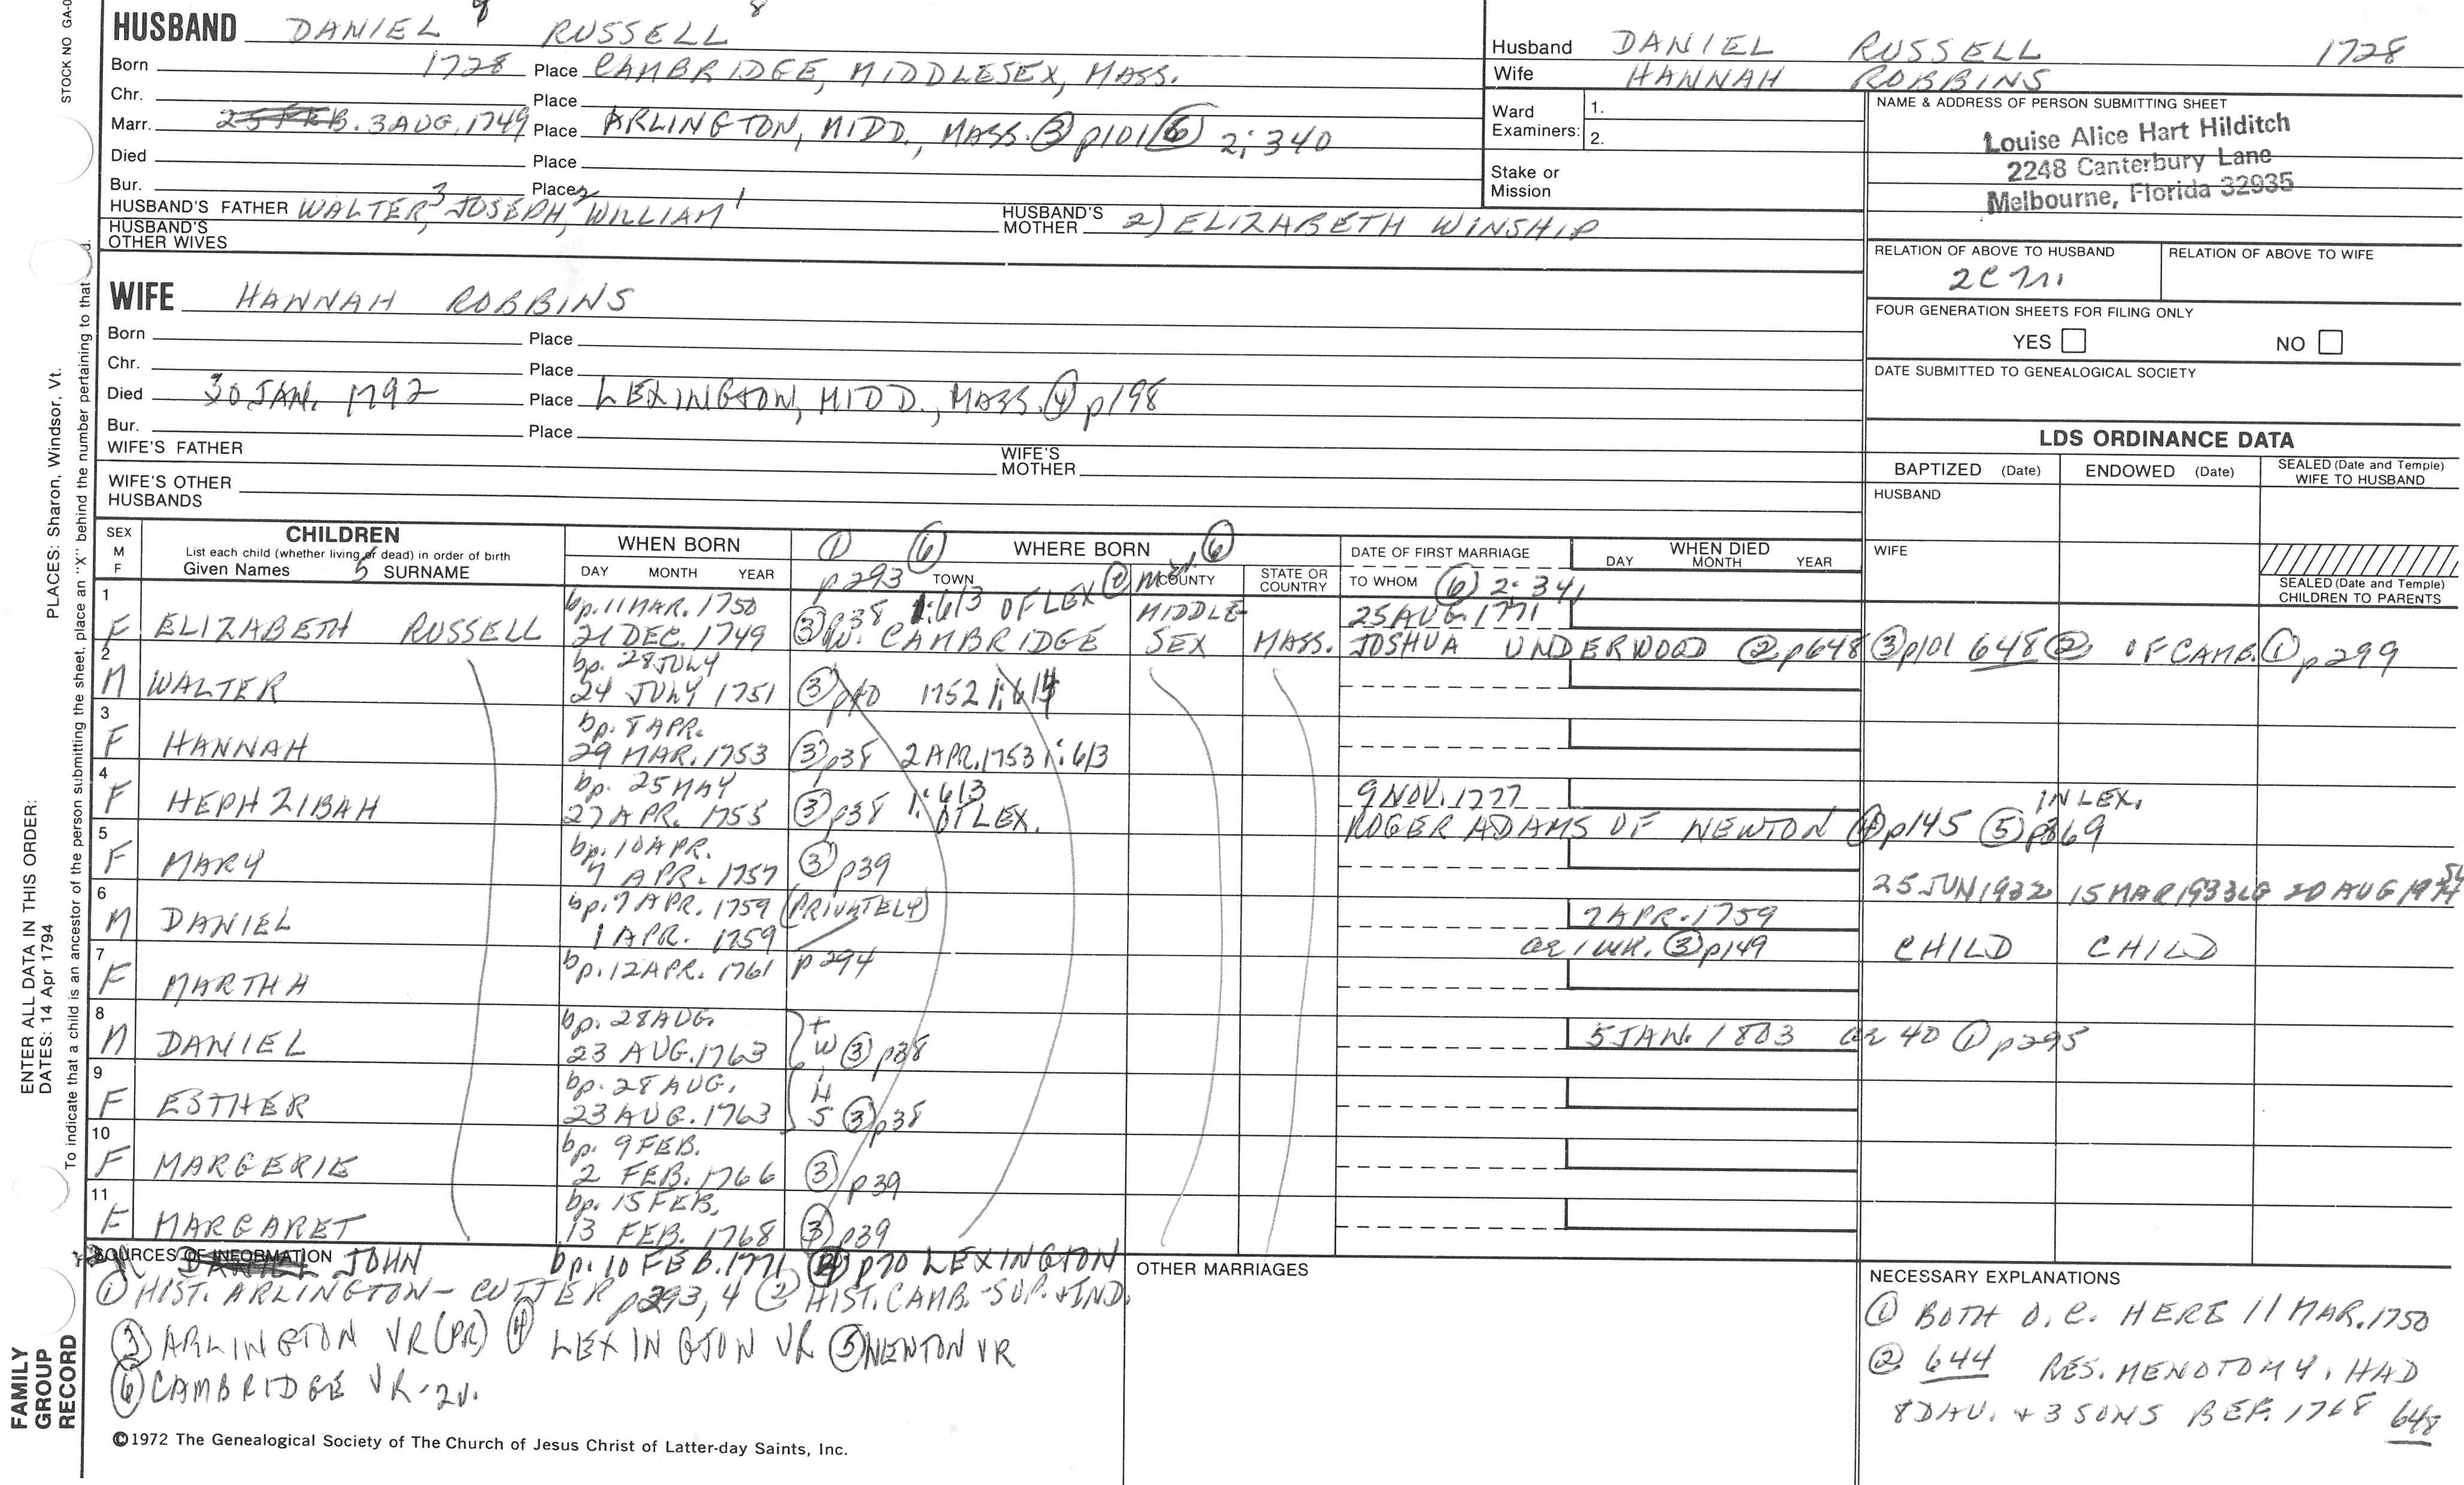 STOCK NO GA-0
HUSBAND DANIEL 4 RUSSELL 8
Born 1728 Place CAMBRIDGE, MIDDLESEX, MASS.
Chr. Place
Marr. 25 FEB. 3 AUG. 1749 Place ARLINGTON, MIDD., MASS. ③ p101 ⑥ 2:340
Died Place
Bur. Place
HUSBAND'S FATHER WALTER,3 JOSEPH,2 WILLIAM1 HUSBAND'S MOTHER 2) ELIZABETH WINSHIP
HUSBAND'S OTHER WIVES
WIFE HANNAH ROBBINS
Born Place
Chr. Place
Died 30 JAN. 1792 Place LEXINGTON, MIDD., MASS. ④ p198
Bur. Place
WIFE'S FATHER WIFE'S MOTHER
WIFE'S OTHER HUSBANDS
Husband DANIEL RUSSELL 1728
Wife HANNAH ROBBINS
Ward Examiners: 1.
2.
Stake or Mission
NAME & ADDRESS OF PERSON SUBMITTING SHEET
Louise Alice Hart Hilditch
2248 Canterbury Lane
Melbourne, Florida 32935
RELATION OF ABOVE TO HUSBAND RELATION OF ABOVE TO WIFE
2C7r.
FOUR GENERATION SHEETS FOR FILING ONLY
YES NO
DATE SUBMITTED TO GENEALOGICAL SOCIETY
LDS ORDINANCE DATA
BAPTIZED (Date) ENDOWED (Date) SEALED (Date and Temple) WIFE TO HUSBAND
HUSBAND
WIFE
SEALED (Date and Temple) CHILDREN TO PARENTS
SEX M F
CHILDREN
List each child (whether living or dead) in order of birth
Given Names 5 SURNAME
WHEN BORN
DAY MONTH YEAR
① ⑥ WHERE BORN ⑥
p293 TOWN ② COUNTY STATE OR COUNTRY
DATE OF FIRST MARRIAGE
TO WHOM ⑥ 2:341
WHEN DIED
DAY MONTH YEAR
1 bp. 11 MAR. 1750 1:613 OF LEX MIDDLE- 25 AUG. 1771
F ELIZABETH RUSSELL 21 DEC. 1749 ③ p38 W. CAMBRIDGE SEX MASS. JOSHUA UNDERWOOD ② p648 ③ p101 648 ② OF CAMB. ① p299
2 bp. 28 JULY
M WALTER 24 JULY 1751 ③ p40 1752 1:614
3 bp. 8 APR.
F HANNAH 29 MAR. 1753 ③ p38 2 APR. 1753 1:613
4 bp. 25 MAY 1:613 9 NOV. 1777 IN LEX.
F HEPHZIBAH 27 APR. 1755 ③ p38 OF LEX. ROGER ADAMS OF NEWTON ④ p145 ⑤ p369
5 bp. 10 APR.
F MARY 7 APR. 1757 ③ p39 25 JUN 1932 15 MAR 1933 LG 20 AUG 1974 SL
6 bp. 7 APR. 1759 (PRIVATELY) 7 APR. 1759
M DANIEL 1 APR. 1759 ae 1 WK. ③ p149 CHILD CHILD
7 bp. 12 APR. 1761 p294
F MARTHA
8 bp. 28 AUG.
M DANIEL 23 AUG. 1763 ③ p38 5 JAN. 1803 ae 40 ① p295
9 bp. 28 AUG.
F ESTHER 23 AUG. 1763 ③ p38
TWINS
10 bp. 9 FEB.
F MARGERIE 2 FEB. 1766 ③ p39
11 bp. 15 FEB.
F MARGARET 13 FEB. 1768 ③ p39
SOURCES OF INFORMATION JOHN bp. 10 FEB. 1771 ④ p70 LEXINGTON
① HIST. ARLINGTON - CUTTER p293, 4 ② HIST. CAMB. - SUP. + IND.
③ ARLINGTON VR (PR) ④ LEXINGTON VR ⑤ NEWTON VR
⑥ CAMBRIDGE VR - 2v.
©1972 The Genealogical Society of The Church of Jesus Christ of Latter-day Saints, Inc.
OTHER MARRIAGES
NECESSARY EXPLANATIONS
① BOTH O.C. HERE 11 MAR. 1750
② 644 RES. MENOTOMY. HAD
8 DAU. + 3 SONS BEF. 1768 648
PLACES: Sharon, Windsor, Vt.
ENTER ALL DATA IN THIS ORDER:
DATES: 14 Apr 1794
To indicate that a child is an ancestor of the person submitting the sheet, place an "X" behind the number pertaining to that
FAMILY GROUP RECORD